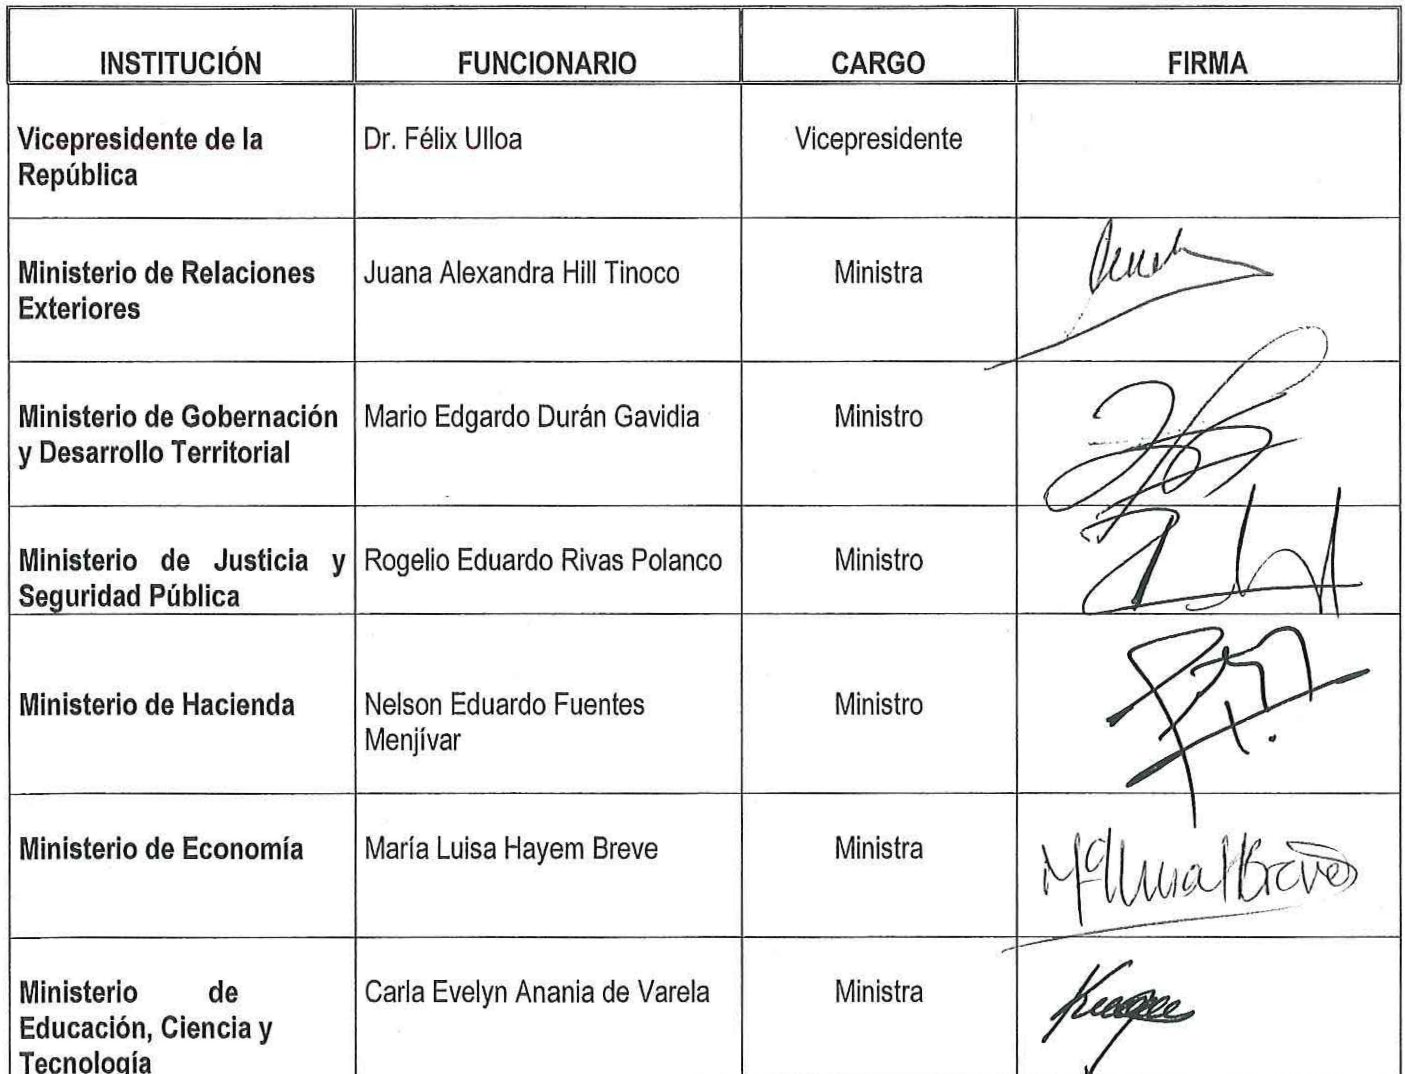 INSTITUCIÓN FUNCIONARIO CARGO FIRMA
Vicepresidente de la República Dr. Félix Ulloa Vicepresidente
Ministerio de Relaciones Exteriores Juana Alexandra Hill Tinoco Ministra
Ministerio de Gobernación y Desarrollo Territorial Mario Edgardo Durán Gavidia Ministro
Ministerio de Justicia y Seguridad Pública Rogelio Eduardo Rivas Polanco Ministro
Ministerio de Hacienda Nelson Eduardo Fuentes Menjívar Ministro
Ministerio de Economía María Luisa Hayem Breve Ministra
Ministerio de Educación, Ciencia y Tecnología Carla Evelyn Anania de Varela Ministra